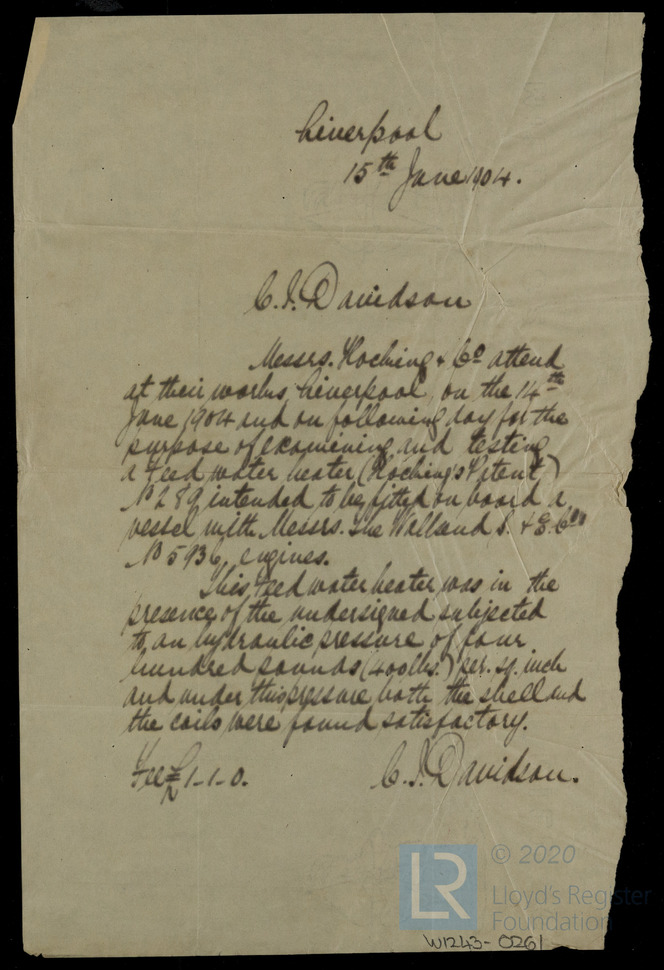 Liverpool
15th June 1904.
C. J. Davidson
Messrs. Hocking & Co attend
at their works, Liverpool, on the 14th
June 1904 and on following day for the
purpose of examining and testing
a feed water heater (Hocking's Patent)
No 289, intended to be fitted on board a
vessel with Messrs. The Wallsend S. & E. Co's
No 5936, engines.
This feed water heater was in the
presence of the undersigned subjected
to an hydraulic pressure of four
hundred pounds (400 lbs.) per. sq. inch
and under this pressure both the shell and
the coils were found satisfactory.
Fee £1-1-0.
C. J. Davidson.
LR © 2020
Lloyd's Register
Foundation
W1243-0261